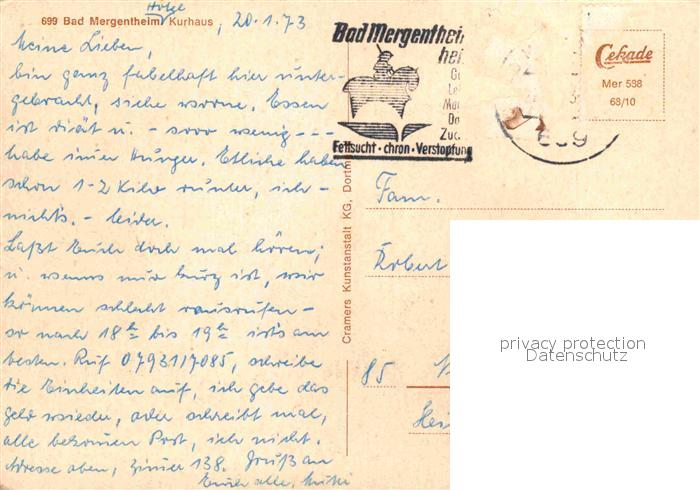 699 Bad Mergentheim Kurhaus, 20.1.73
Meine Lieben,
bin ganz fabelhaft hier unter-
gebracht, siehe vorne. Essen
ist diät u. - sooo wenig - - -
habe immer Hunger. Etliche haben
schon 1-2 Kilo runter, ich -
nichts. - leider.
Laßt Euch doch mal hören;
u. wenns nur kurz ist, wir
können schlecht rausrufen -
so nach 18 h bis 19 h ists am
besten. Ruf 07931/7085, schreibe
die Einheiten auf, ich gebe das
Geld wieder, oder schreibt mal,
alle bekommen Post, ich nicht.
Adresse oben, Zimmer 138. Gruß an
Euch alle,
Bad Mergentheim
hei
Zuc
Fettsucht · chron · Verstopfung
Cekade
Mer 588
68/10
699
Cramers Kunstanstalt KG, Dortm
Fam.
Robert
85 N
privacy protection
Datenschutz